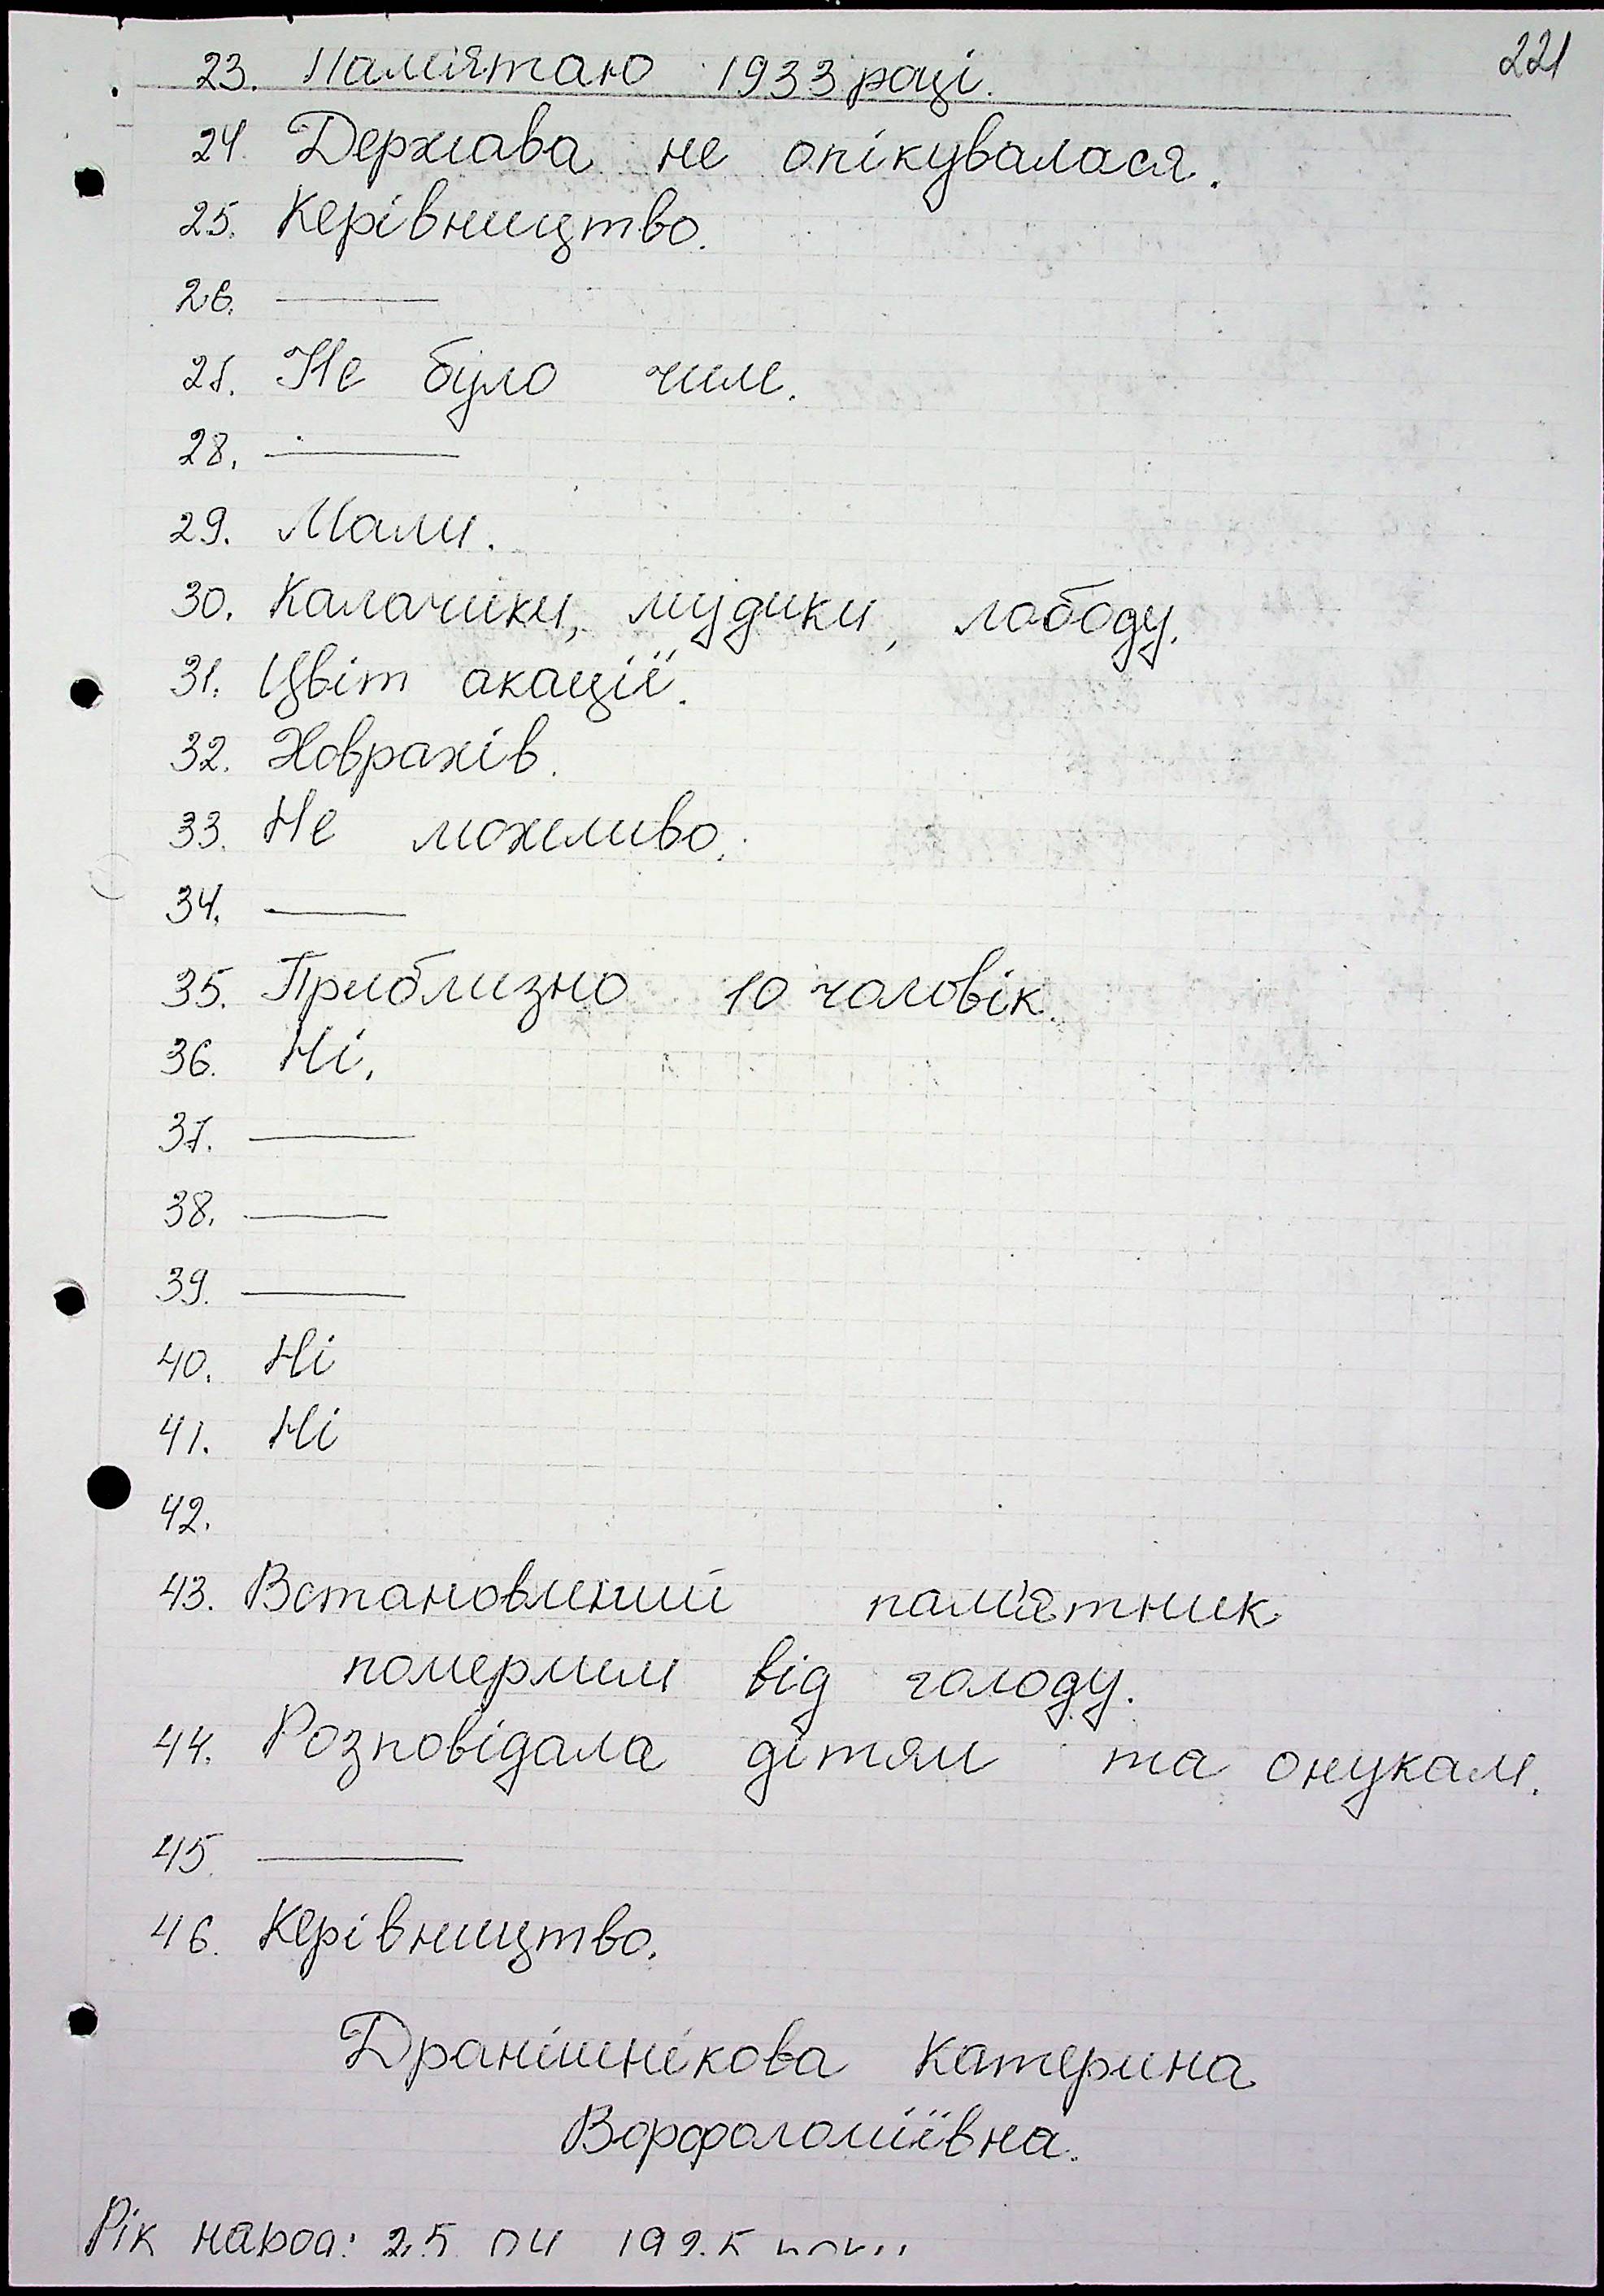 221
23. Пам'ятаю 1933 році.
24. Держава не опікувалася.
25. Керівництво.
26. ———
27. Не було чим.
28. ———
29. Мали.
30. Калачики, мудики, лободу.
31. Цвіт акації.
32. Ховрахів.
33. Не можливо.
34. ———
35. Приблизно 10 чоловік.
36. Ні.
37. ———
38. ———
39. ———
40. Ні
41. Ні
42.
43. Встановлений пам'ятник
померлим від голоду.
44. Розповідала дітям та онукам.
45. ———
46. Керівництво.
Дранішнікова Катерина
Ворфоломіївна.
Рік народ: 25 04 1925